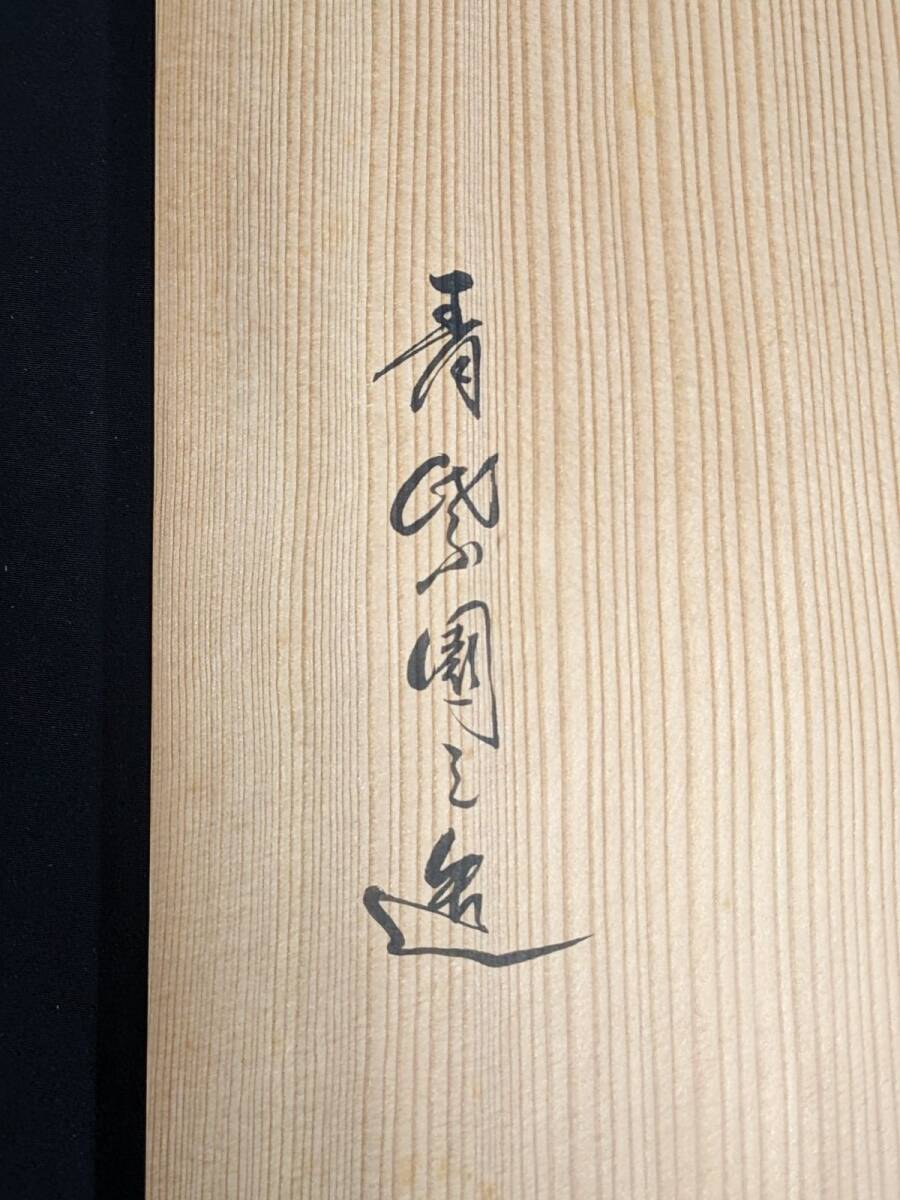 青紫園之造